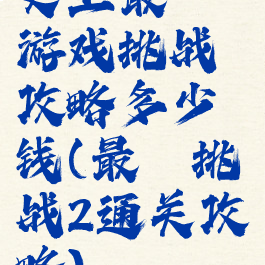 史上最
游戏挑战
攻略多少
钱(最 挑
战2通关攻
略)